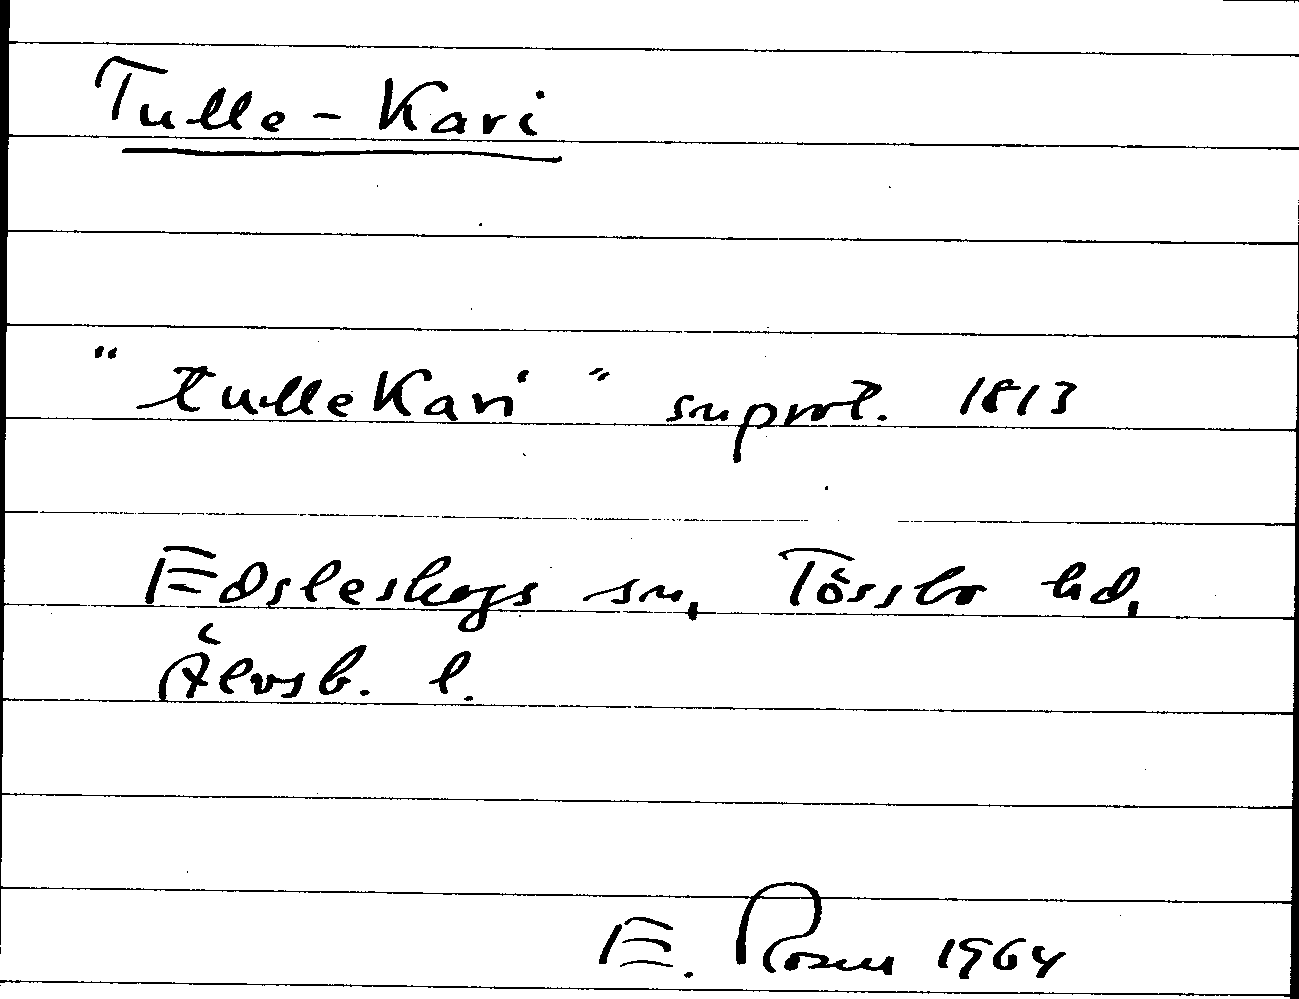 Tulle-Kari
"tulleKari" snprot. 1813
Edsleskogs sn, Tössbo hd,
Älvsb. l.
E. Rosen 1964